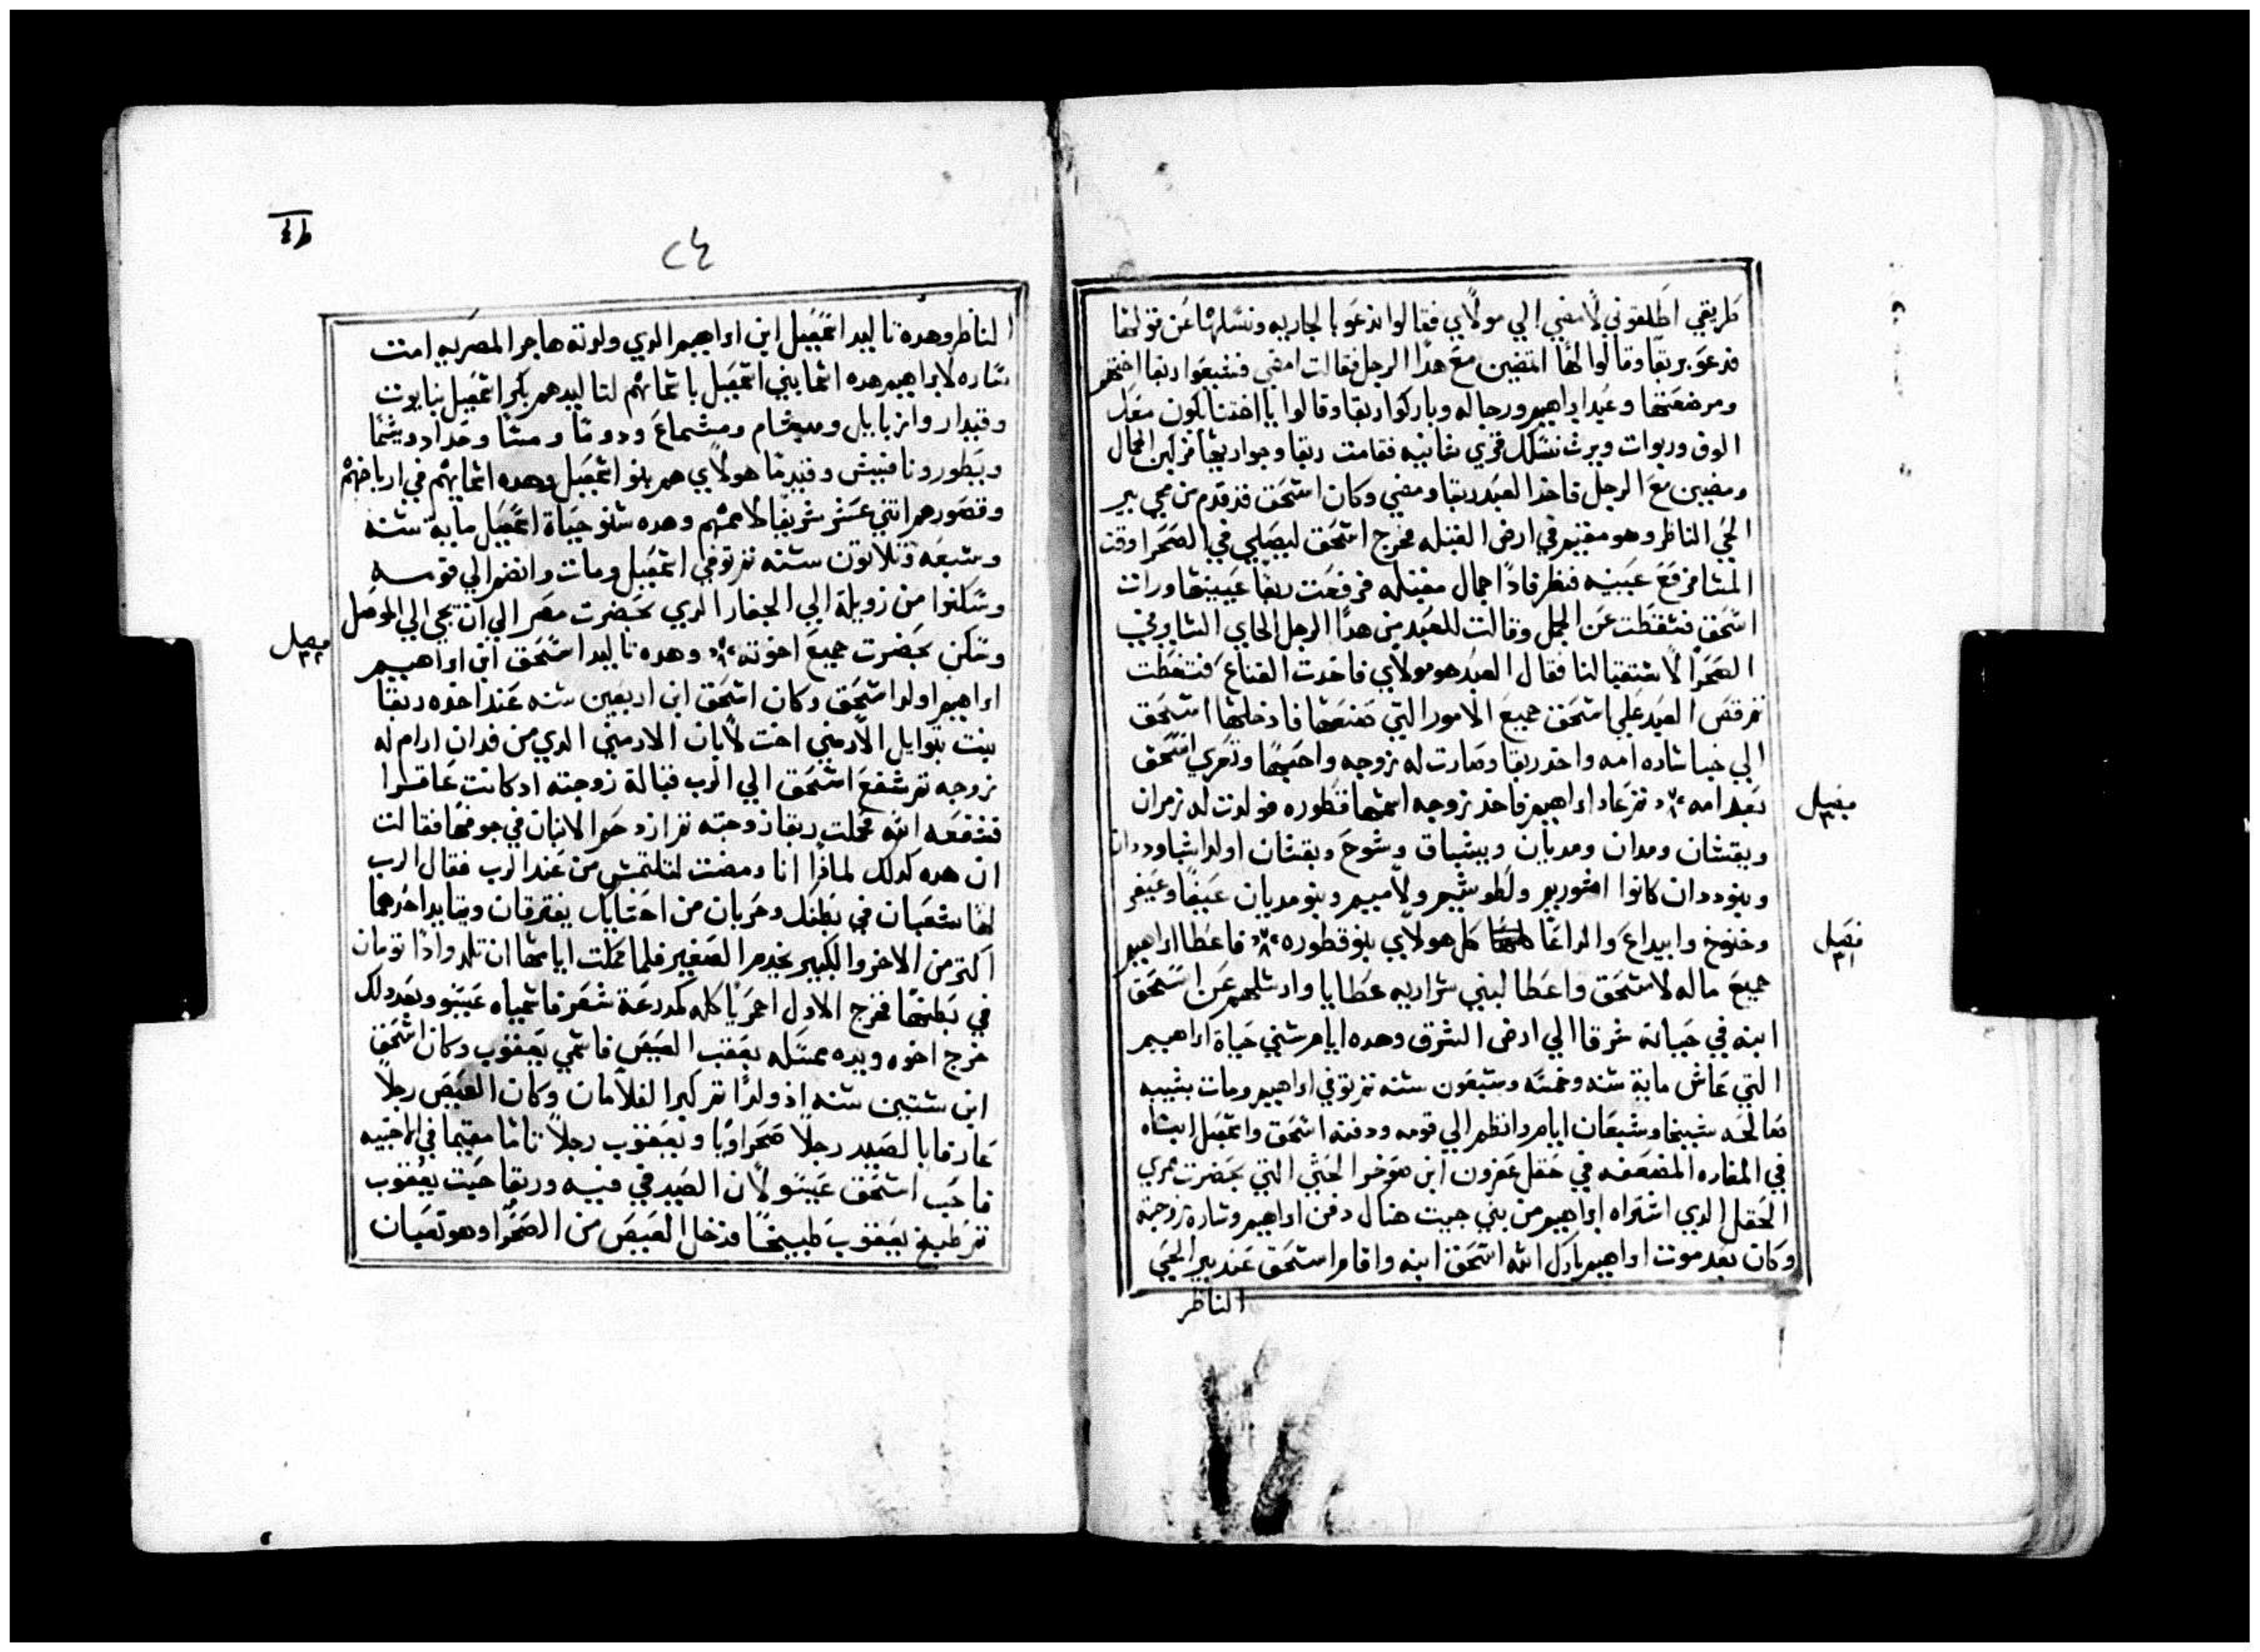 طريقي اطلقوني لامضي الي مولاي فقالوا ندعوا بالجاريه ونسلها عن قولها
فدعو بريقا وقالوا لها اتمضين مع هدا الرجل فقالت امضي فشيعوا ريقا اختهم
ومرضعتها وعبد ابراهيم ورجاله وباركوا ريقا وقالوا يا اختنا يكون منك
الوف وربوات ويرث نسلك قري شانيه فقامت ريقا وجواريها فركبن الجمال
ومضين مع الرجل فاخد العبد ريقا ومضي وكان اسحق قد قدم من مجي بير
الحي الناظر وهو مقيم في ارض القبله فخرج اسحق ليصلي في الصحرا وقت
المسا فرفع عينيه فنظر فادا جمال مقبله فرفعت ريقا عينيها ورات
اسحق فسقطت عن الجمل وقالت للعبد من هدا الرجل الجاي الساير في
الصحرا لاستقبالنا فقال العبد هو مولاي فاخدت القناع فتغطت
ثم قص العبد علي اسحق جميع الامور التي صنعها فادخلها اسحق
الي خبا ساره امه واخد ريقا وصارت له زوجه واحبها وتعزي اسحق
بعد امه ثم عاد ابراهيم فاخد زوجه اسمها قطوره فولدت له زمران
ويقشان ومدان ومديان ويشباق وشوح ويقشان اولد شبا وددان
وبنو ددان كانوا اشوريم ولطوشيم ولاميم وبنو مديان عيفا وعيفر
وخنوخ وابيداع والداعا كل هولاي بنو قطوره فاعطا ابراهيم
جميع ماله لاسحق واعطا لبني سراريه عطايا وارسلهم عن اسحق
ابنه في حياته شرقا الي ارض الشرق وهده ايام سني حياة ابراهيم
التي عاش ماية سنه وخمسه وسبعون سنه ثم توفي ابراهيم ومات بشيبه
صالحه شيخا وشبعان ايام وانظم الي قومه ودفنه اسحق واسمعيل ابناه
في المغاره المضعفه في حقل عفرون ابن صوخر الحثي التي بحضرت ممري
الحقل الدي اشتراه ابراهيم من بني حيت هناك دفن ابراهيم وساره زوجته
وكان بعد موت ابراهيم بارك الله اسحق ابنه واقام اسحق عند بير الحي
الناظر
فصل
٣٠
فصل
٣١
٢٤
الناظر وهده تاليد اسمعيل ابن ابراهيم الدي ولدته هاجر المصريه امت
ساره لابراهيم هده اسما بني اسمعيل باسمائهم لتاليدهم بكر اسمعيل نبايوت
وقيدار وادبايل ومبشام ومشماع ودوما ومسا وحداد وتيما
ويطور ونافيش وقيدما هولاي هم بنو اسمعيل وهده اسمايهم في ارباضهم
وقصورهم اثني عشر شريفا لاممهم وهده سنو حياة اسمعيل ماية سنه
وسبعه وثلاثون سنه ثم توفي اسمعيل ومات وانضم الي قومه
وسكنوا من زويلة الي الجفار الدي بحضرت مصر الي ان تجي الي الموصل
وسكن بحضرت جميع اخوته وهده تاليد اسحق ابن ابراهيم
ابراهيم اولد اسحق وكان اسحق ابن اربعين سنه عند اخده ريقا
بنت بتوايل الارمني اخت لابان الارمني الدي من فدان ارام له
زوجه ثم شفع اسحق الي الرب قبالة زوجته اد كانت عاقرا
فشفعه الله فحملت ريقا زوجته ثم ازدحم الابنان في جوفها فقالت
ان هده كدلك لمادا انا ومضت لتلتمس من عند الرب فقال الرب
لها شعبان في بطنك وحزبان من احشايك يفترقان ويتايد احدهما
اكثر من الاخر والكبير يخدم الصغير فلما كملت ايامها ان تلد وادا تومان
في بطنها فخرج الاول احمريا كله كمدرعة شعر فاسمياه عيسو وبعد دلك
خرج اخوه ويده ممسكه بعقب العيص فاسمي يعقوب وكان اسحق
ابن ستين سنه اذ ولدا ثم كبرا الغلامان وكان العيص رجلا
عارفا بالصيد رجلا صحراويا ويعقوب رجلا تاما مقيما في الاخبيه
فاحب اسحق عيسو لان الصيد في فيه وريقا حبت يعقوب
ثم طبخ يعقوب طبيخا فدخل العيص من الصحرا وهو تعبان
فصل
٣٢